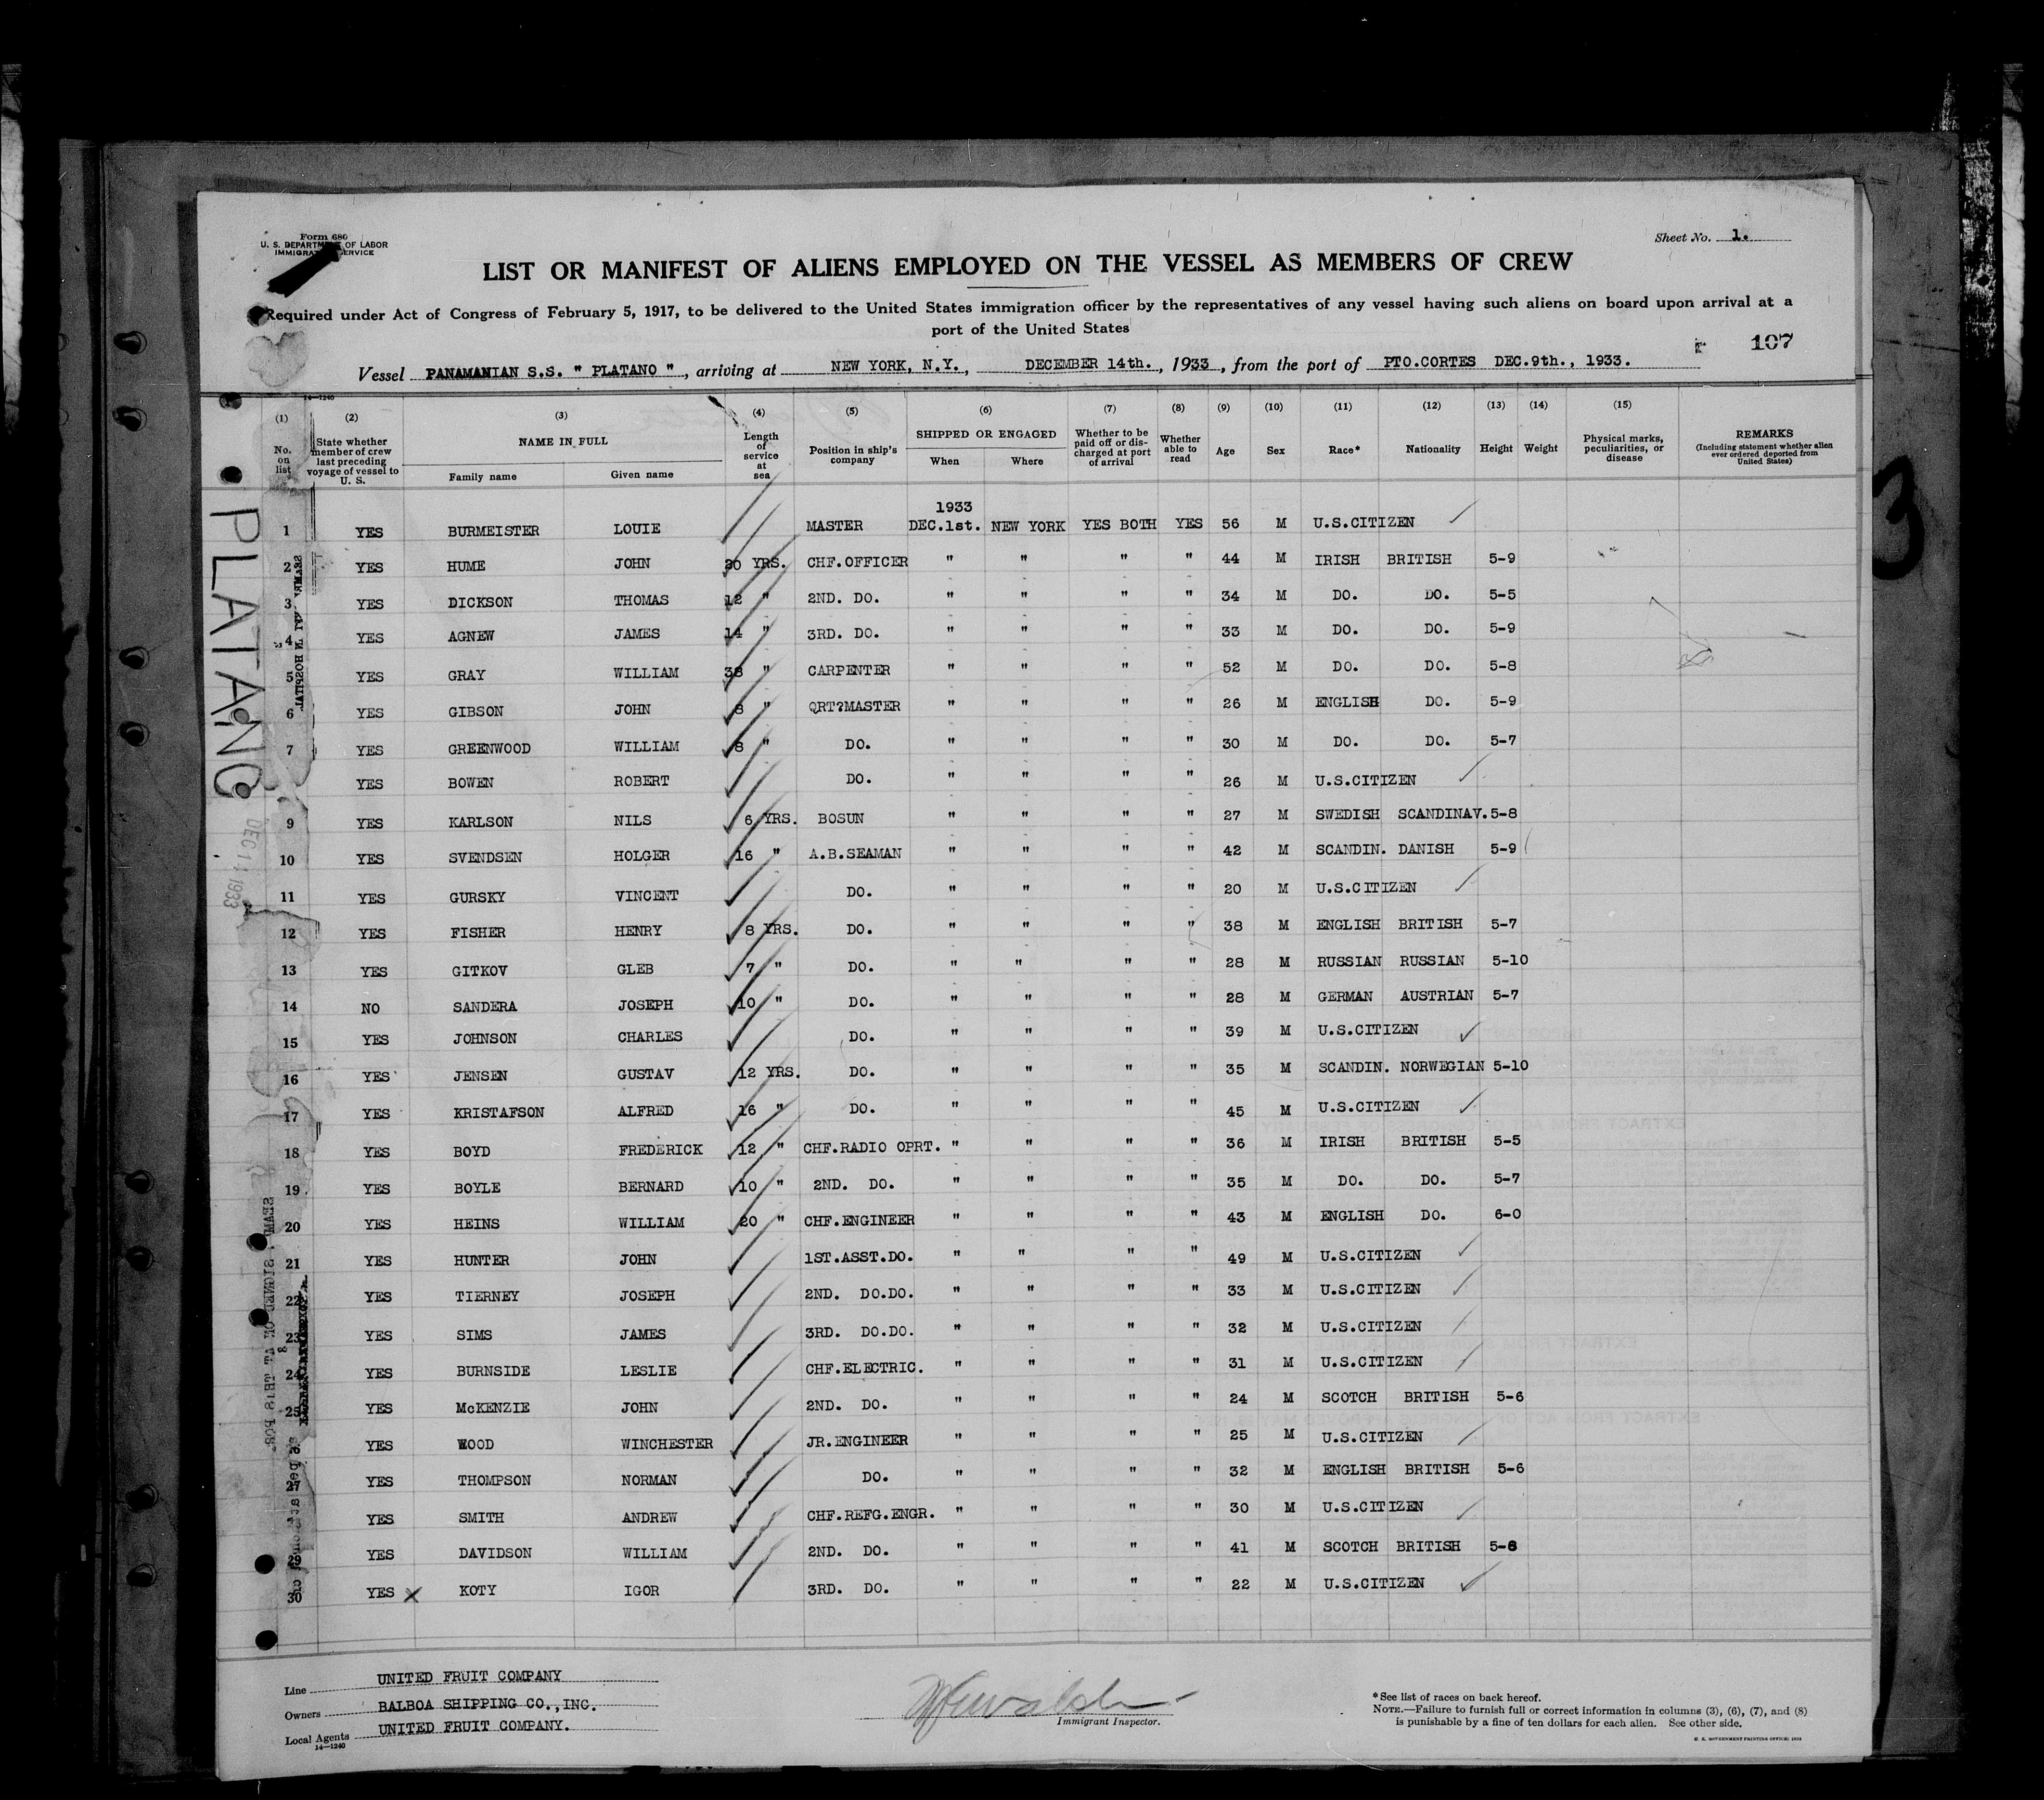 Form 680
U. S. DEPARTMENT OF LABOR
IMMIGRATION SERVICE
Sheet No. 1.
LIST OR MANIFEST OF ALIENS EMPLOYED ON THE VESSEL AS MEMBERS OF CREW
Required under Act of Congress of February 5, 1917, to be delivered to the United States immigration officer by the representatives of any vessel having such aliens on board upon arrival at a
port of the United States
107
Vessel PANAMANIAN S.S. " PLATANO ", arriving at NEW YORK, N.Y., DECEMBER 14th., 1933, from the port of PTO.CORTES DEC.9th., 1933.
14—1240
(1) (2) (3) (4) (5) (6) (7) (8) (9) (10) (11) (12) (13) (14) (15)
No. on list State whether member of crew last preceding voyage of vessel to U. S. NAME IN FULL Family name Given name Length of service at sea Position in ship's company SHIPPED OR ENGAGED When Where Whether to be paid off or discharged at port of arrival Whether able to read Age Sex Race* Nationality Height Weight Physical marks, peculiarities, or disease REMARKS (Including statement whether alien ever ordered deported from United States)
1933
1 YES BURMEISTER LOUIE MASTER DEC.1st. NEW YORK YES BOTH YES 56 M U.S.CITIZEN
2 YES HUME JOHN 20 YRS. CHF.OFFICER " " " " 44 M IRISH BRITISH 5-9
3 YES DICKSON THOMAS 12 " 2ND. DO. " " " " 34 M DO. DO. 5-5
4 YES AGNEW JAMES 14 " 3RD. DO. " " " " 33 M DO. DO. 5-9
5 YES GRAY WILLIAM 38 " CARPENTER " " " " 52 M DO. DO. 5-8
6 YES GIBSON JOHN 8 " QRT?MASTER " " " " 26 M ENGLISH DO. 5-9
7 YES GREENWOOD WILLIAM 8 " DO. " " " " 30 M DO. DO. 5-7
YES BOWEN ROBERT DO. " " " " 26 M U.S.CITIZEN
9 YES KARLSON NILS 6 YRS. BOSUN " " " " 27 M SWEDISH SCANDINAV. 5-8
10 YES SVENDSEN HOLGER 16 " A.B.SEAMAN " " " " 42 M SCANDIN. DANISH 5-9
11 YES GURSKY VINCENT DO. " " " " 20 M U.S.CITIZEN
12 YES FISHER HENRY 8 YRS. DO. " " " " 38 M ENGLISH BRITISH 5-7
13 YES GITKOV GLEB 7 " DO. " " " " 28 M RUSSIAN RUSSIAN 5-10
14 NO SANDERA JOSEPH 10 " DO. " " " " 28 M GERMAN AUSTRIAN 5-7
15 YES JOHNSON CHARLES DO. " " " " 39 M U.S.CITIZEN
16 YES JENSEN GUSTAV 12 YRS. DO. " " " " 35 M SCANDIN. NORWEGIAN 5-10
17 YES KRISTAFSON ALFRED 16 " DO. " " " " 45 M U.S.CITIZEN
18 YES BOYD FREDERICK 12 " CHF.RADIO OPRT. " " " " 36 M IRISH BRITISH 5-5
19 YES BOYLE BERNARD 10 " 2ND. DO. " " " " 35 M DO. DO. 5-7
20 YES HEINS WILLIAM 20 " CHF.ENGINEER " " " " 43 M ENGLISH DO. 6-0
21 YES HUNTER JOHN 1ST.ASST.DO. " " " " 49 M U.S.CITIZEN
22 YES TIERNEY JOSEPH 2ND. DO.DO. " " " " 33 M U.S.CITIZEN
23 YES SIMS JAMES 3RD. DO.DO. " " " " 32 M U.S.CITIZEN
24 YES BURNSIDE LESLIE CHF.ELECTRIC. " " " " 31 M U.S.CITIZEN
25 YES McKENZIE JOHN 2ND. DO. " " " " 24 M SCOTCH BRITISH 5-6
YES WOOD WINCHESTER JR.ENGINEER " " " " 25 M U.S.CITIZEN
27 YES THOMPSON NORMAN DO. " " " " 32 M ENGLISH BRITISH 5-6
YES SMITH ANDREW CHF.REFG.ENGR. " " " " 30 M U.S.CITIZEN
29 YES DAVIDSON WILLIAM 2ND. DO. " " " " 41 M SCOTCH BRITISH 5-8
30 YES X KOTY IGOR 3RD. DO. " " " " 22 M U.S.CITIZEN
PLATANO
DEC 14 1933
3
Line UNITED FRUIT COMPANY
Owners BALBOA SHIPPING CO.,INC.
Local Agents UNITED FRUIT COMPANY.
14—1240
Immigrant Inspector.
*See list of races on back hereof.
NOTE.—Failure to furnish full or correct information in columns (3), (6), (7), and (8)
is punishable by a fine of ten dollars for each alien. See other side.
U. S. GOVERNMENT PRINTING OFFICE: 1932